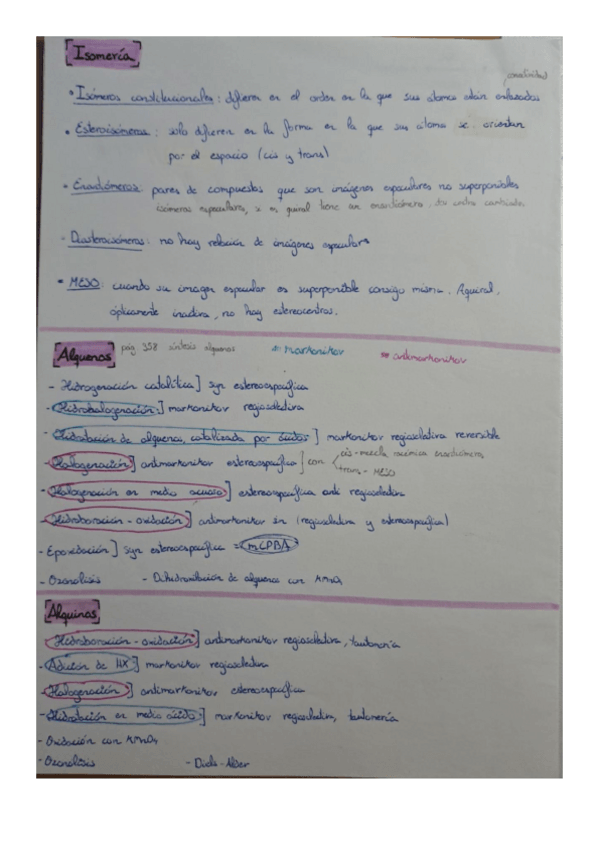 Isomería
conectividad
• Isómeros constitucionales: difieren en el orden en la que sus átomos están enlazados
• Esteroisómeros: solo difieren en la forma en la que sus átomos se orientan
por el espacio (cis y trans)
• Enantiómeros: pares de compuestos que son imágenes especulares no superponibles
isómeros especulares, si es quiral tiene un enantiómero.
• Diasteroisómeros: no hay relación de imágenes especulares
• MESO: cuando su imagen especular es superponible consigo misma. Aquiral,
ópticamente inactiva, no hay estereocentros.
Alquenos pág 358 síntesis alquenos * markonikov * antimarkonikov
- Hidrogenación catalítica] syn estereoespecífica
- Hidrohalogenación] markonikov regioselectiva
- Hidratación de alquenos, catalizada por ácidos] markonikov regioselectiva reversible
- Halogenación] antimarkonikov estereoespecífica] con cis - mezcla racémica enantiómeros
trans - MESO
- Halogenación en medio acuoso] estereoespecífica anti regioselectiva
- Hidroboración - oxidación] antimarkonikov sin (regioselectiva y estereoespecífica)
- Epoxidación] syn estereoespecífica = mCPBA
- Ozonolisis - Dihidroxilación de alquenos con KMnO4
Alquinos
- Hidroboración - oxidación] antimarkonikov regioselectiva, tautomería
- Adición de HX] markonikov regioselectiva
- Halogenación] antimarkonikov estereoespecífica
- Hidratación en medio ácido] markonikov regioselectiva, tautomería
- Oxidación con KMnO4
- Ozonolisis - Diels-Alder